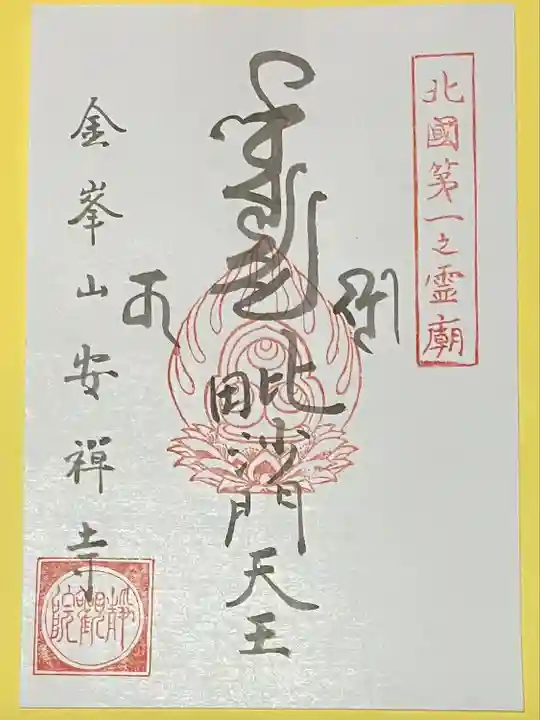 北國第一之霊廟
毗沙門天王
金峯山安禅寺
静観院